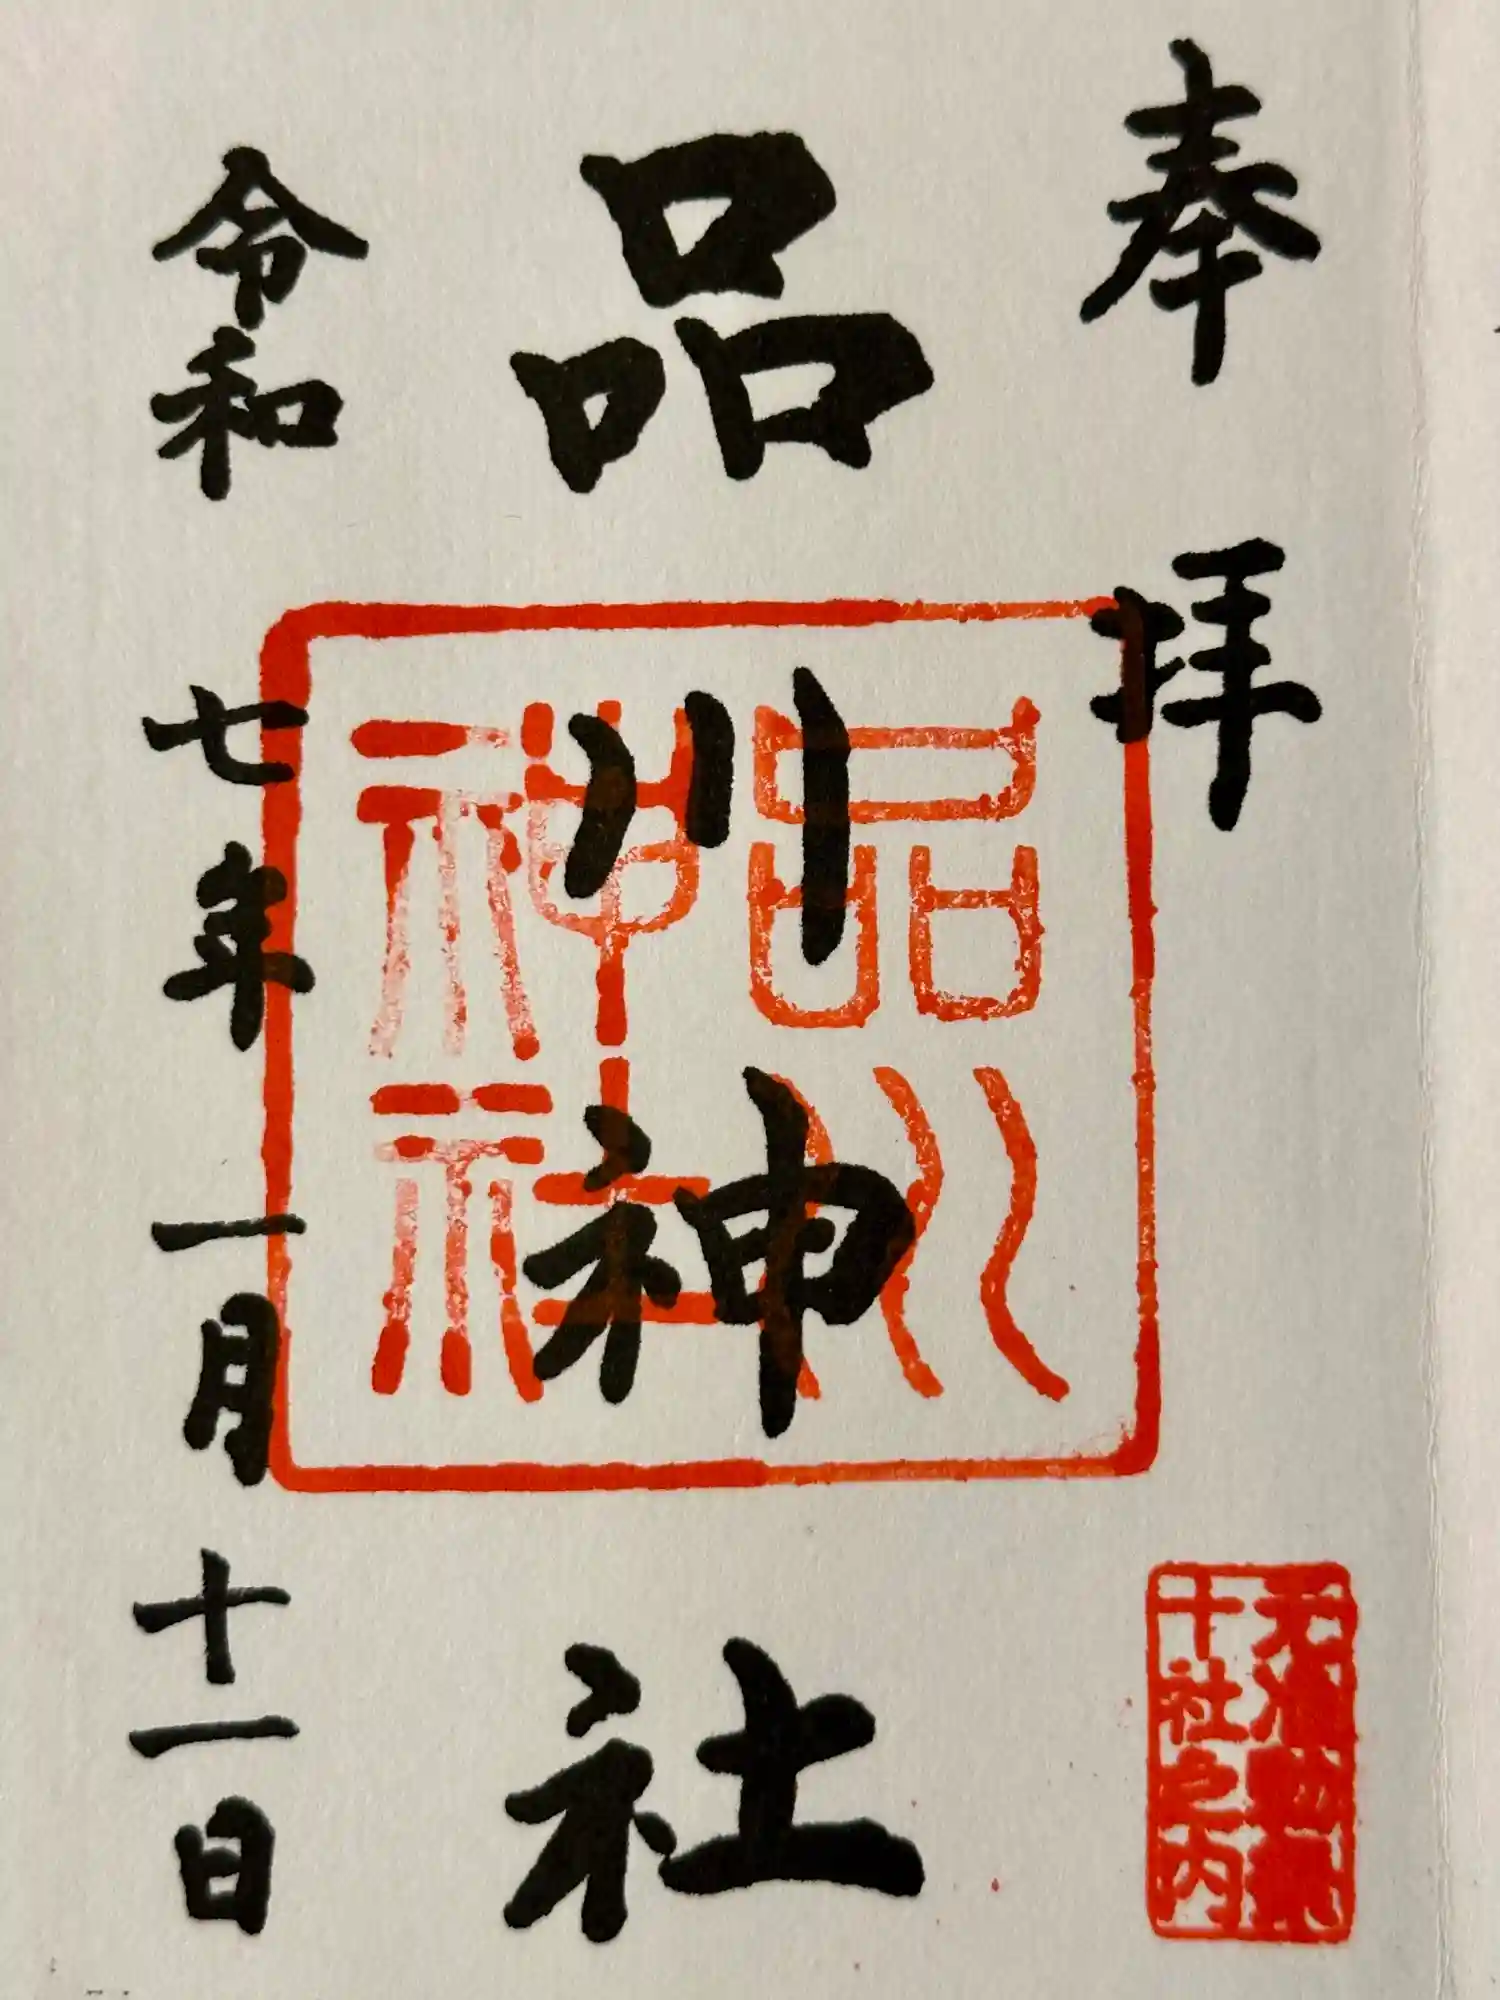 奉拝
品川神社
品川
神社
十社之内
令和七年一月十一日